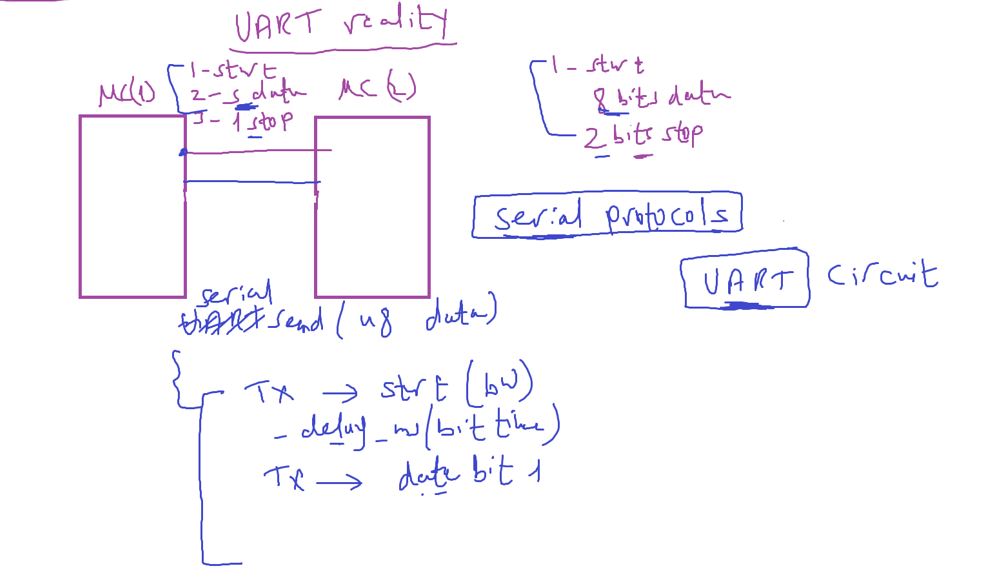 UART reality
MC(1)
1-strt
2-5 data
3- 1 stop
MC(2)
1- strt
8 bits data
2 bits stop
serial protocols
UART circuit
serial
UART send(u8 data)
Tx → strt (low)
- delay_ms(bit time)
Tx → data bit 1